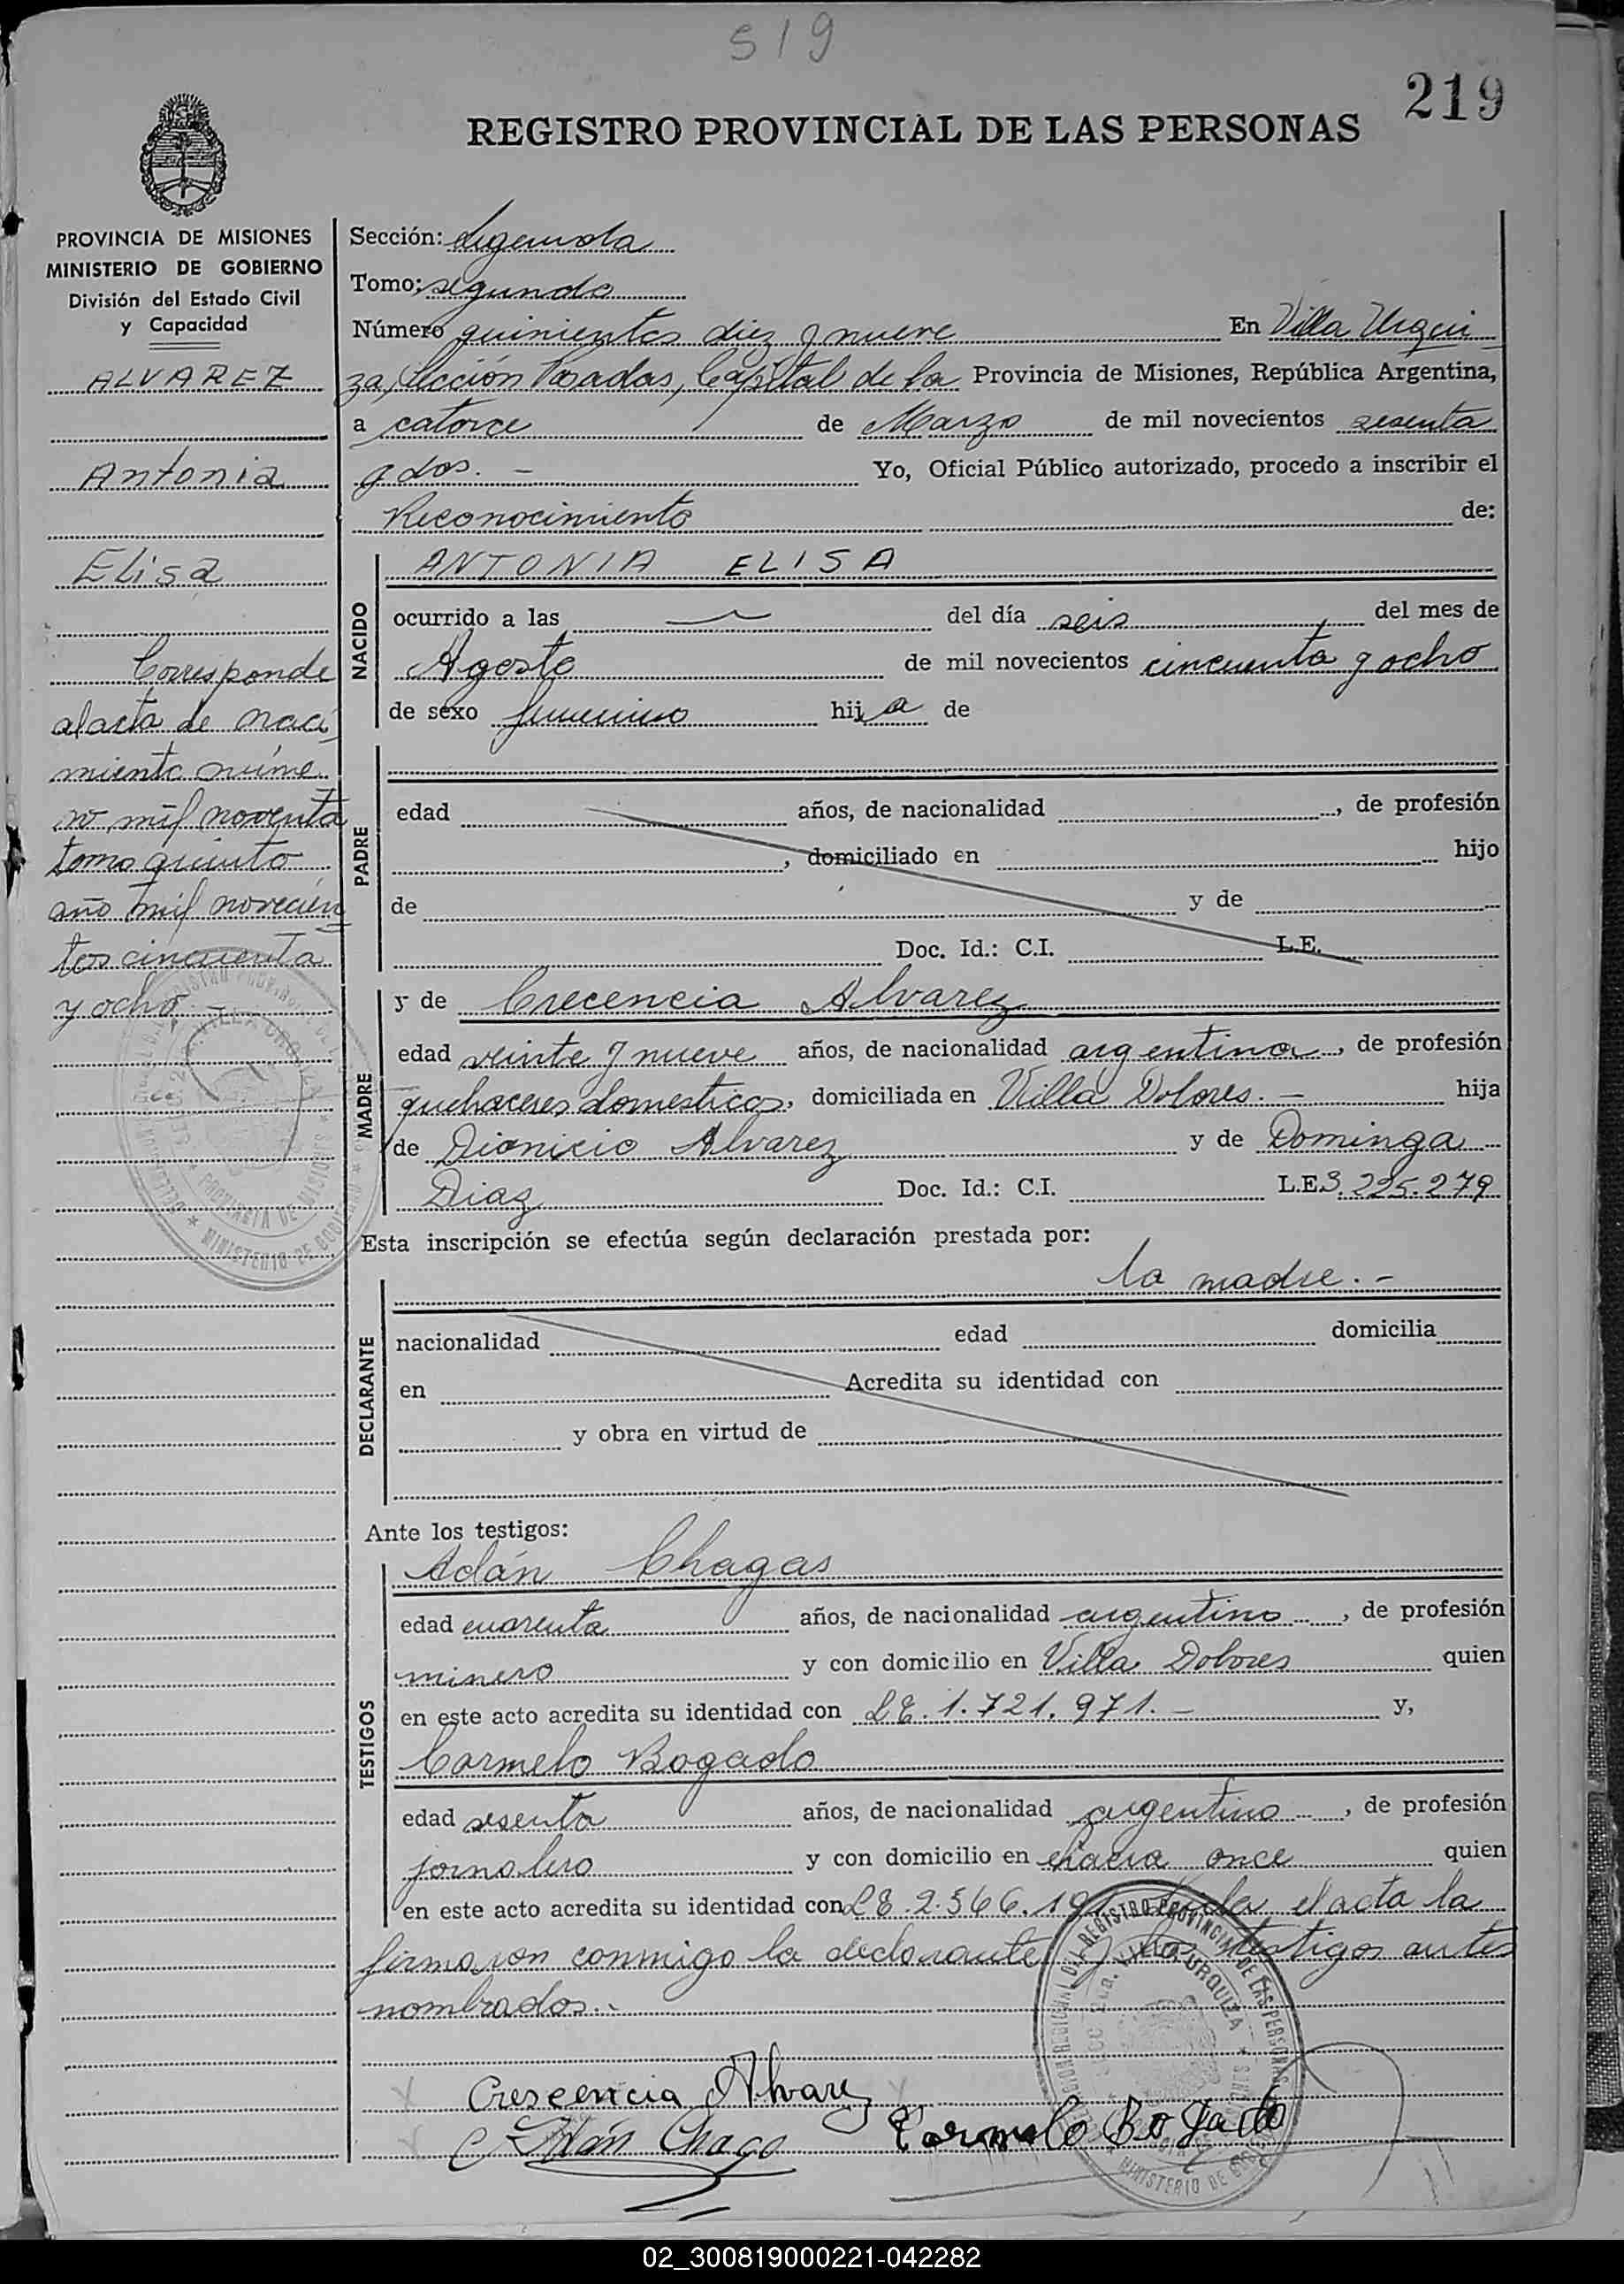 519
219
REGISTRO PROVINCIAL DE LAS PERSONAS
PROVINCIA DE MISIONES
MINISTERIO DE GOBIERNO
División del Estado Civil
y Capacidad
ALVAREZ
Antonia
Elisa
Corresponde
al acta de naci
miento núme
ro mil noventa
tomo quinto
año mil novecien
tos cincuenta
y ocho.-
Sección: Segunda
Tomo: segundo
Número quinientos diez y nueve En Villa Urqui
za, Sección Posadas, Capital de la Provincia de Misiones, República Argentina,
a catorce de Marzo de mil novecientos sesenta
y dos. - Yo, Oficial Público autorizado, procedo a inscribir el
Reconocimiento de:
NACIDO
ANTONIA ELISA
ocurrido a las — del día seis del mes de
Agosto de mil novecientos cincuenta y ocho
de sexo femenino hija de
PADRE
edad años, de nacionalidad , de profesión
, domiciliado en hijo
de y de
Doc. Id.: C.I. L.E.
MADRE
y de Crecencia Alvarez
edad veinte y nueve años, de nacionalidad argentina, de profesión
quehaceres domesticos, domiciliada en Villa Dolores. - hija
de Dionicio Alvarez y de Dominga
Diaz Doc. Id.: C.I. L.E. 3.225.279
Esta inscripción se efectúa según declaración prestada por:
la madre.-
DECLARANTE
nacionalidad edad domicilia
en Acredita su identidad con
y obra en virtud de
Ante los testigos:
TESTIGOS
Adán Chagas
edad cuarenta años, de nacionalidad argentino, de profesión
minero y con domicilio en Villa Dolores quien
en este acto acredita su identidad con LE. 1.721.971.- y,
Carmelo Bogado
edad sesenta años, de nacionalidad argentino, de profesión
jornalero y con domicilio en chacra once quien
en este acto acredita su identidad con LE. 2.566.19 el acta la
firmaron conmigo la declarante y los testigos antes
nombrados.-
Crescencia Alvarez
Adán Chaga
Carmelo Bogado
02_300819000221-042282